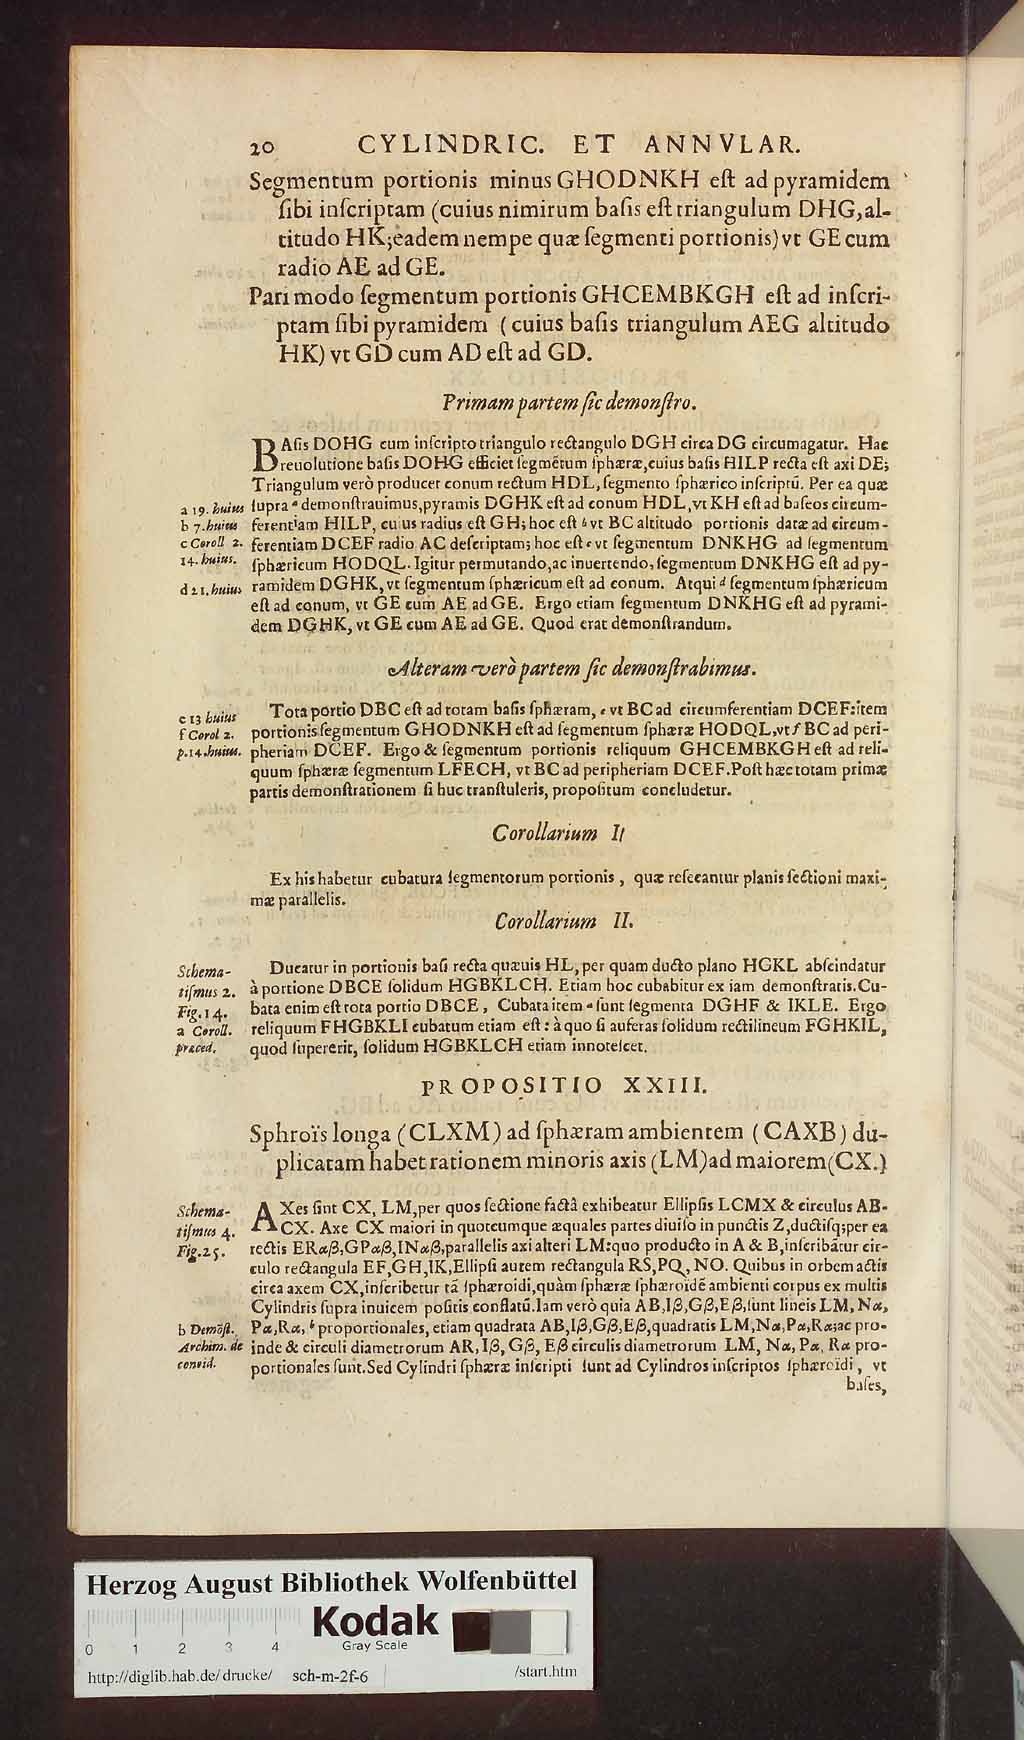 20 CYLINDRIC. ET ANNVLAR.
Segmentum portionis minus GHODNKH eſt ad pyramidem
ſibi inſcriptam (cuius nimirum baſis eſt triangulum DHG, al-
titudo HK; eadem nempe quæ ſegmenti portionis) vt GE cum
radio AE ad GE.
Pari modo ſegmentum portionis GHCEMBKGH eſt ad inſcri-
ptam ſibi pyramidem (cuius baſis triangulum AEG altitudo
HK) vt GD cum AD eſt ad GD.
Primam partem ſic demonſtro.
BAſis DOHG cum inſcripto triangulo rectangulo DGH circa DG circumagatur. Hac
reuolutione baſis DOHG efficiet ſegmētum ſphæræ, cuius baſis HILP recta eſt axi DE;
Triangulum verò producet conum rectum HDL, ſegmento ſphærico inſcriptū. Per ea quæ
a 19. huius ſupra a demonſtrauimus, pyramis DGHK eſt ad conum HDL, vt KH eſt ad baſeos circum-
b 7. huius ferentiam HILP, cuius radius eſt GH; hoc eſt b vt BC altitudo portionis datæ ad circum-
c Coroll 2. ferentiam DCEF radio AC deſcriptam; hoc eſt c vt ſegmentum DNKHG ad ſegmentum
14. huius. ſphæricum HODQL. Igitur permutando, ac inuertendo, ſegmentum DNKHG eſt ad py-
d 21. huius ramidem DGHK, vt ſegmentum ſphæricum eſt ad conum. Atqui d ſegmentum ſphæricum
eſt ad conum, vt GE cum AE ad GE. Ergo etiam ſegmentum DNKHG eſt ad pyrami-
dem DGHK, vt GE cum AE ad GE. Quod erat demonſtrandum.
Alteram verò partem ſic demonſtrabimus.
e 13 huius Tota portio DBC eſt ad totam baſis ſphæram, e vt BC ad circumferentiam DCEF: item
f Corol 2. portionis ſegmentum GHODNKH eſt ad ſegmentum ſphæræ HODQL, vt f BC ad peri-
p. 14. huius. pheriam DCEF. Ergo & ſegmentum portionis reliquum GHCEMBKGH eſt ad reli-
quum ſphæræ ſegmentum LFECH, vt BC ad peripheriam DCEF. Poſt hæc totam primæ
partis demonſtrationem ſi huc tranſtuleris, propoſitum concludetur.
Corollarium I.
Ex his habetur cubatura ſegmentorum portionis, quæ reſecantur planis ſectioni maxi-
mæ parallelis.
Corollarium II.
Schema- Ducatur in portionis baſi recta quæuis HL, per quam ducto plano HGKL abſcindatur
tiſmus 2. à portione DBCE ſolidum HGBKLCH. Etiam hoc cubabitur ex iam demonſtratis. Cu-
Fig. 14. bata enim eſt tota portio DBCE, Cubata item a ſunt ſegmenta DGHF & IKLE. Ergo
a Coroll. reliquum FHGBKLI cubatum etiam eſt: à quo ſi auferas ſolidum rectilineum FGHKIL,
præced. quod ſupererit, ſolidum HGBKLCH etiam innoteſcet.
PROPOSITIO XXIII.
Sphroïs longa (CLXM) ad ſphæram ambientem (CAXB) du-
plicatam habet rationem minoris axis (LM) ad maiorem (CX.)
Schema- AXes ſint CX, LM, per quos ſectione factâ exhibeatur Ellipſis LCMX & circulus AB-
tiſmus 4. CX. Axe CX maiori in quotcumque æquales partes diuiſo in punctis Z, ductiſq; per ea
Fig. 25. rectis ERαβ, GPαβ, INαβ, parallelis axi alteri LM: quo producto in A & B, inſcribātur cir-
culo rectangula EF, GH, IK, Ellipſi autem rectangula RS, PQ, NO. Quibus in orbem actis
circa axem CX, inſcribetur tā ſphæroidi, quàm ſphæræ ſphæroidē ambienti corpus ex multis
Cylindris ſupra inuicem poſitis conflatū. Iam verò quia AB, Iβ, Gβ, Eβ, ſunt lineis LM, Nα,
b Demōſt. Pα, Rα, b proportionales, etiam quadrata AB, Iβ, Gβ, Eβ, quadratis LM, Nα, Pα, Rα; ac pro-
Archim. de inde & circuli diametrorum AR, Iβ, Gβ, Eβ circulis diametrorum LM, Nα, Pα, Rα pro-
conoid. portionales ſunt. Sed Cylindri ſphæræ inſcripti ſunt ad Cylindros inſcriptos ſphæroïdi, vt
baſes,
Herzog August Bibliothek Wolfenbüttel
Kodak
Gray Scale
0 1 2 3 4
http://diglib.hab.de/drucke/ sch-m-2f-6 /start.htm